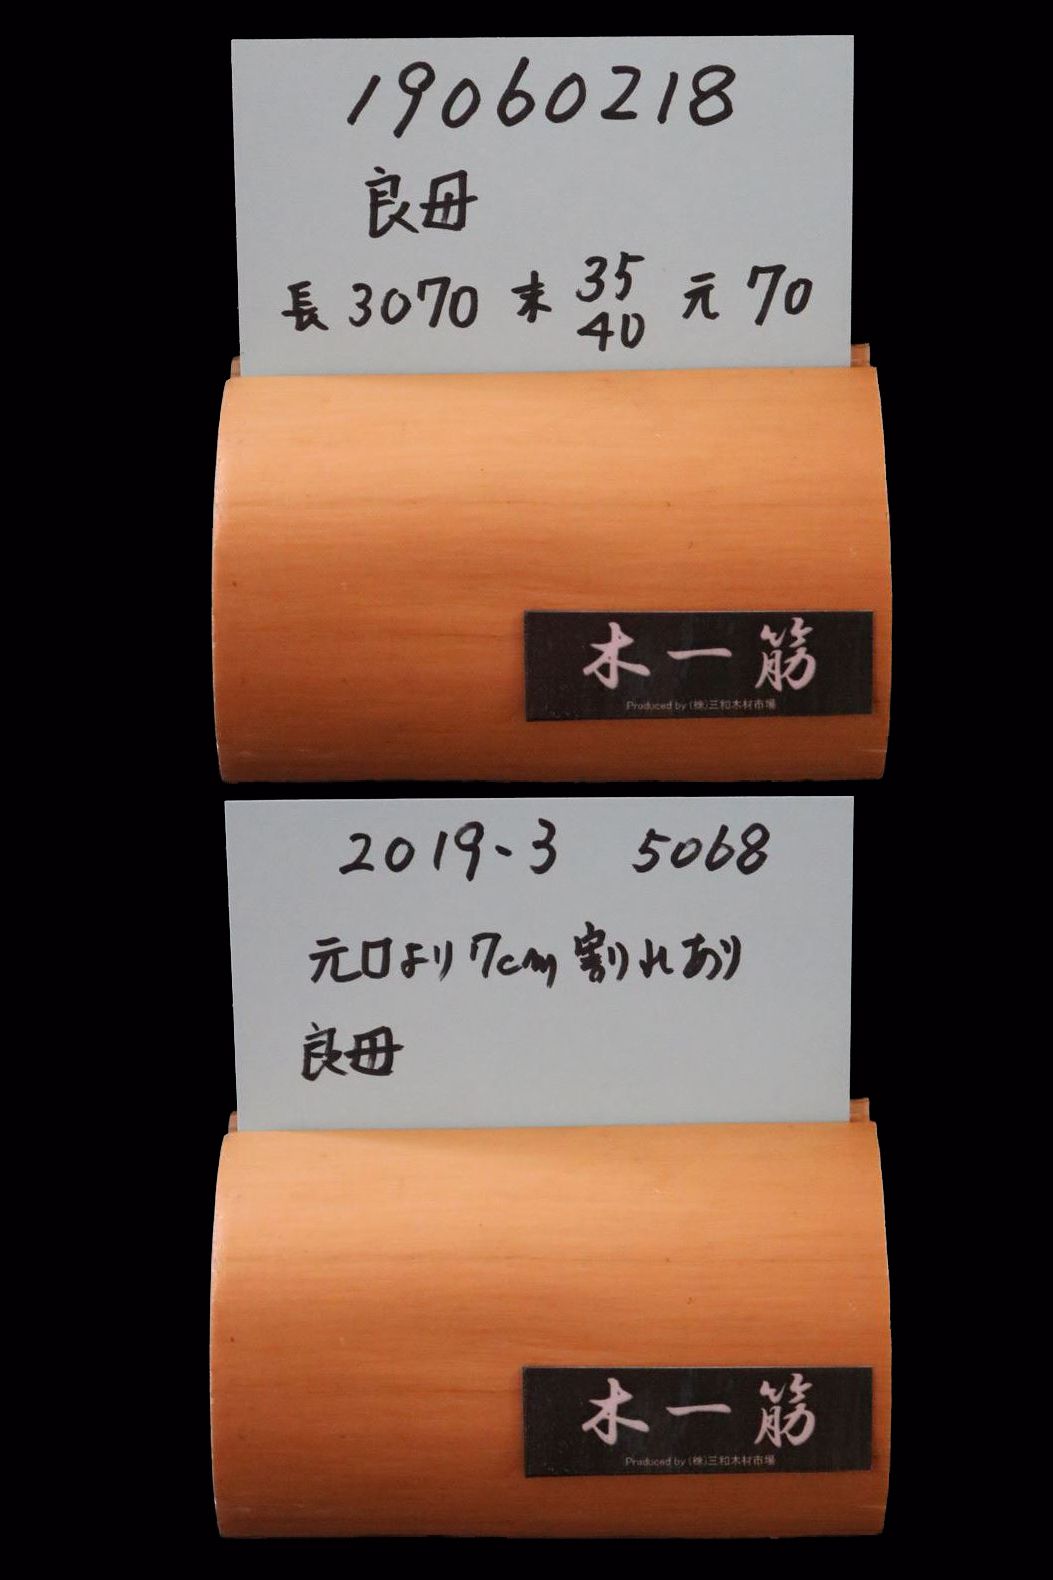 19060218
良母
長 3070 末 35 元 70
40
木一筋
Produced by (株)三和木材市場
2019-3 5068
元口より7cm割れあり
良母
木一筋
Produced by (株)三和木材市場